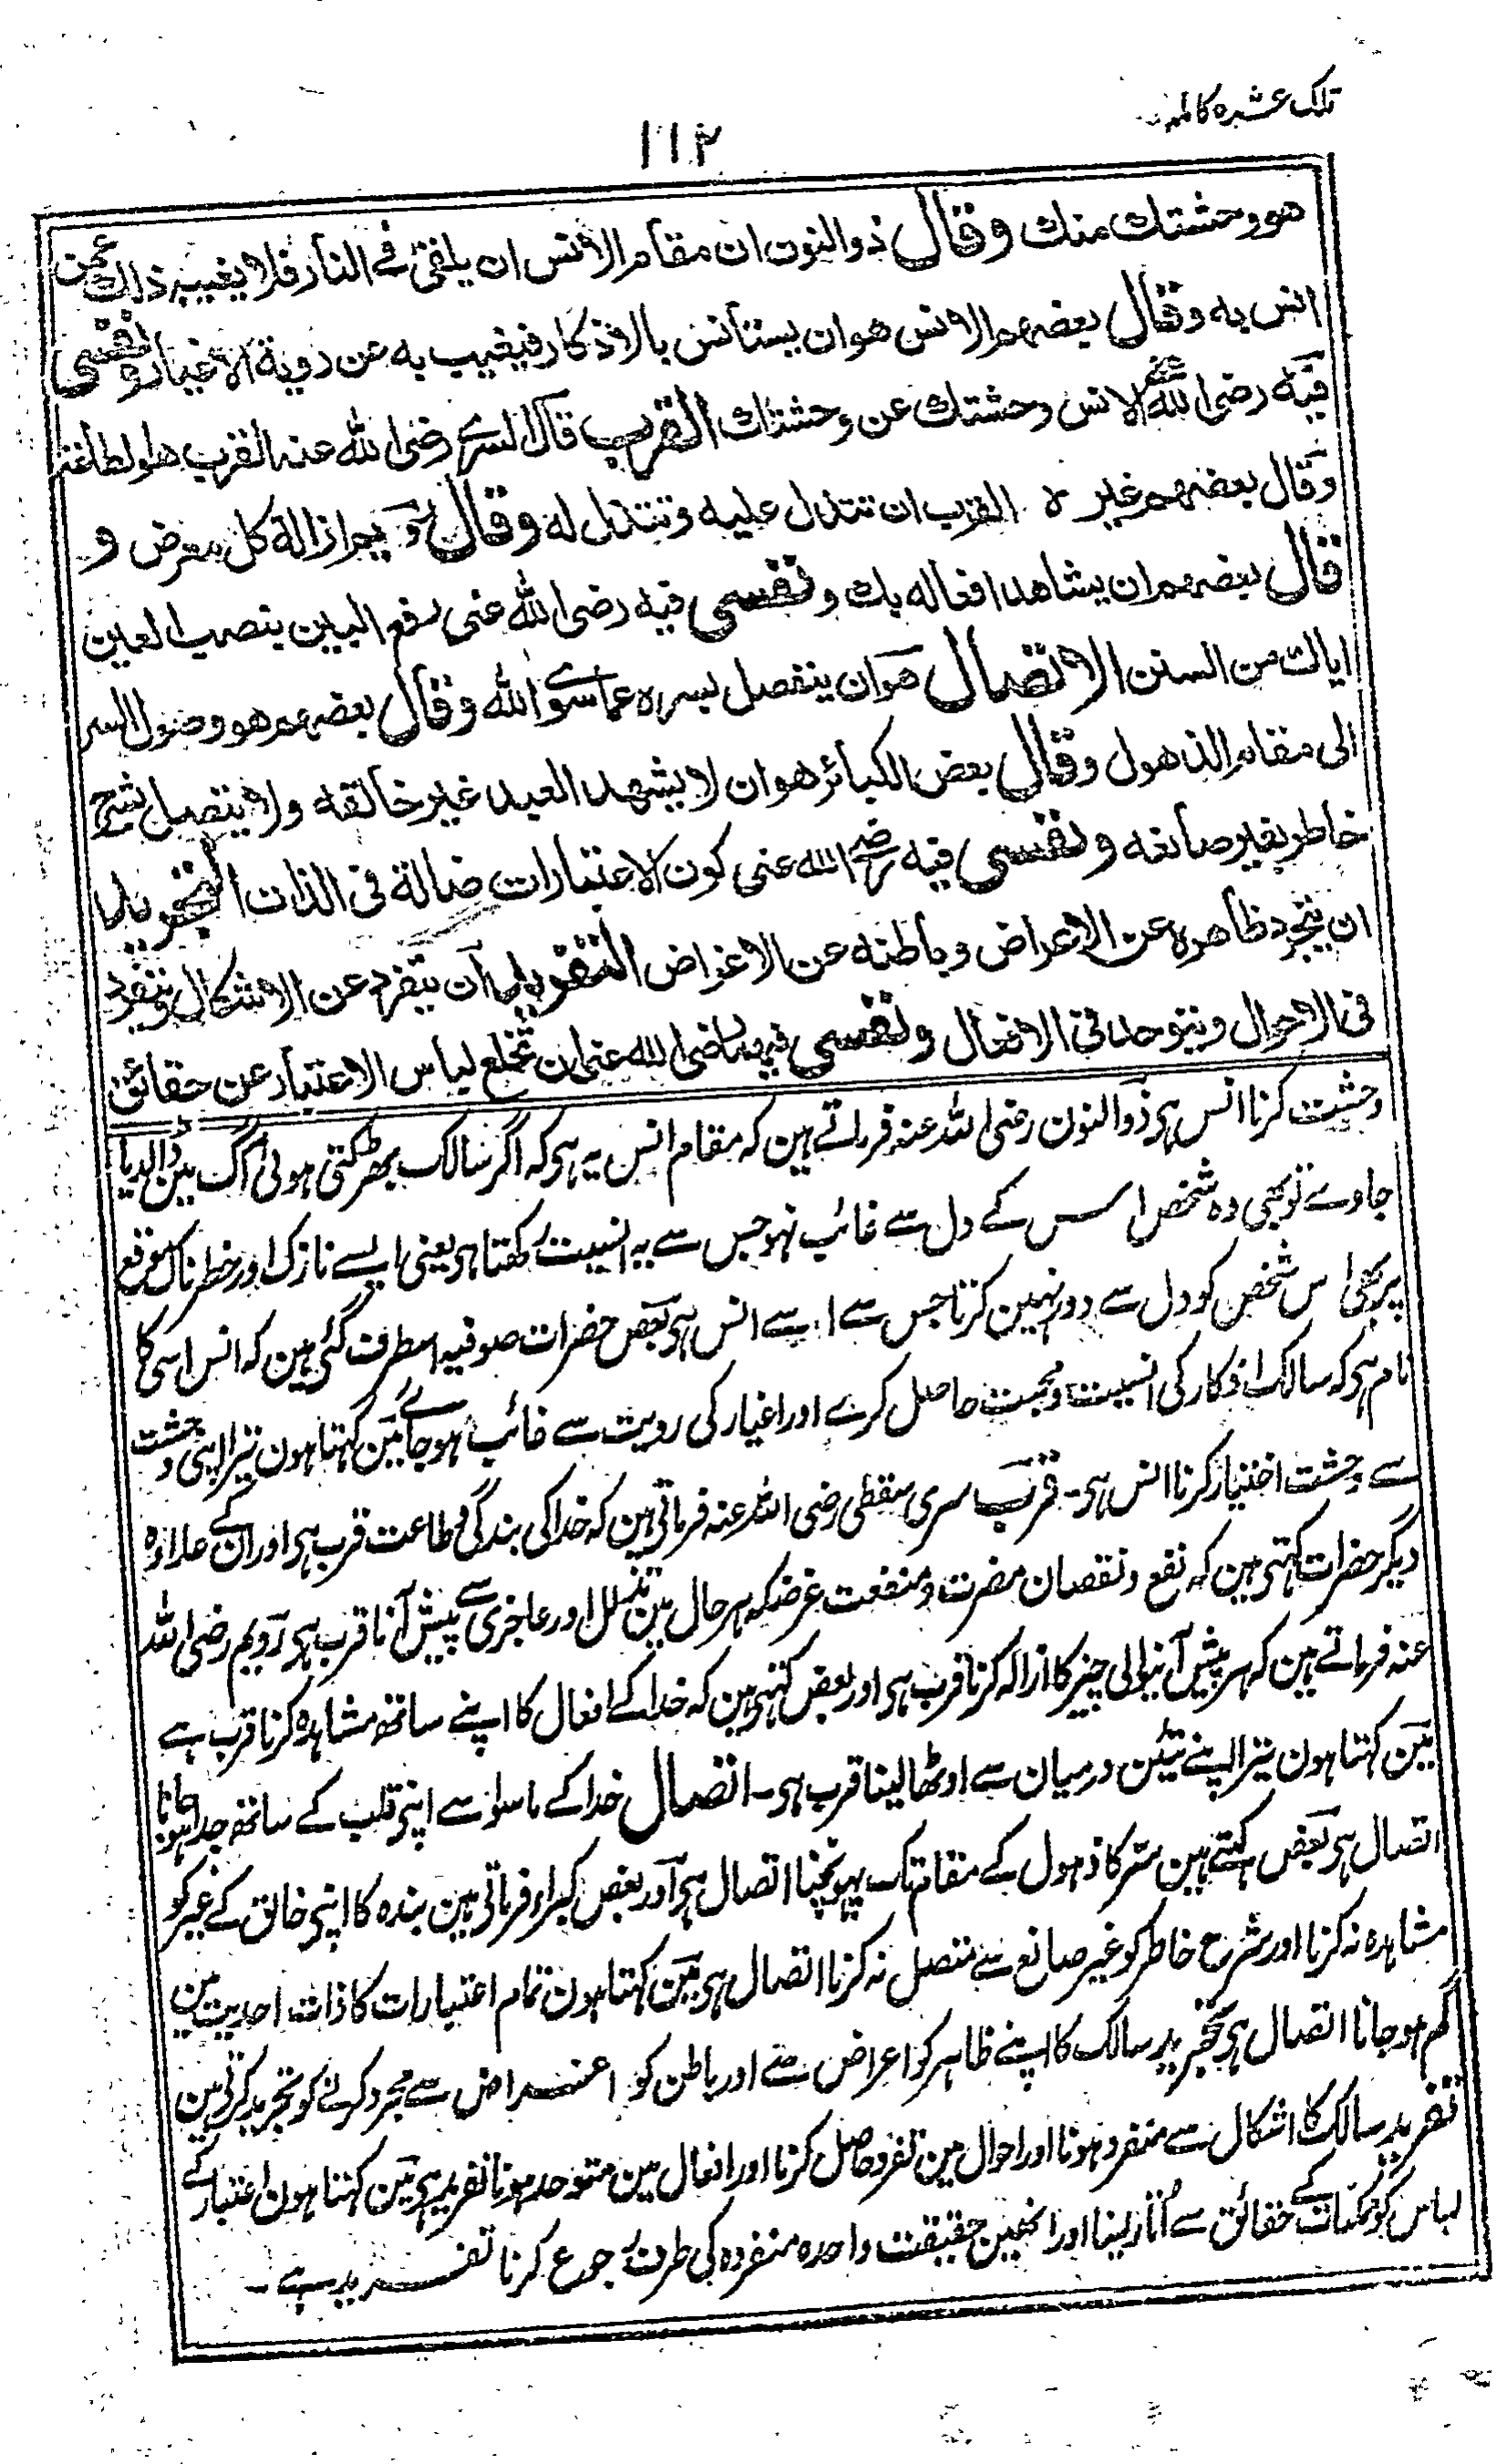 تلک عشرہ کاملہ
۱۱۲
هو وحشتك منك وقال ذوالنون ان مقام الانس ان يلقى فى النار فلا يغيبه ذلك عمن
انس به وقال بعضهم الانس هو ان يستأنس بالاذكار فيغيب به عن روية الاغيار ونفسى
فيه رضى الله عنى الانس وحشتك عن وحشتك القرب قال السرى رضى الله عنه القرب هو الطاعة
وقال بعضهم غيره القرب ان تتدلل عليه وتتذلل له وقال رويم ازالة كل معرض و
قال بعضهم ان يشاهد افعاله بك ونفسى فيه رضى الله عنى رفع البين بنصب العين
اياك من السنن الاتصال هو ان ينفصل بسره عما سوى الله وقال بعضهم هو وصول السر
الى مقام الذهول وقال بعض الكبائر هو ان لا يشهد العبد غير خالقه ولا يتصل بشرح
خاطر بغير صانعه ونفسى فيه رضى الله عنى كون الاعتبارات ضالة فى الذات التجريد
ان يتجرد ظاهره عن الاعراض وباطنه عن الاغراض التفريد ان يتفرد عن الاشكال وينفرد
فى الاحوال ويتوحد فى الافعال ونفسى فيه رضى الله عنى ان تخلع لباس الاعتبار عن حقائق
وحشت کرنا انس ہی ذوالنون رضی اللہ عنہ فرماتے ہین کہ مقام انس یہ ہی کہ اگر سالک بھڑکتی ہوئی آگ مین ڈالدیا
جاوے تو بھی وہ شخص اس کے دل سے غائب نہو جس سے یہ انسیت رکھتا ہی یعنی ایسے نازک اور خطرناک موقع
پر بھی اس شخص کو دل سے دور نہین کرتا جس سے اسے انس ہی بعض حضرات صوفیہ اسطرف گئی ہین کہ انس اسی کا
نام ہی کہ سالک اذکار کی انسیت و محبت حاصل کرے اور اغیار کی رویت سے غائب ہوجائے مین کہتا ہون تیرا اپنی وحشت
سے وحشت اختیار کرنا انس ہی۔ قرب سری سقطی رضی اللہ عنہ فرماتی ہین کہ خدا کی بندگی و طاعت قرب ہی اور ان کے علاوہ
دیگر حضرات کہتی ہین کہ نفع و نقصان مضرت و منفعت غرضکہ ہر حال مین تذلل اور عاجزی سے پیش آنا قرب ہی رویم رضی اللہ
عنہ فرماتے ہین کہ ہر پیش آنیوالی چیز کا ازالہ کرنا قرب ہی اور بعض کہتی ہین کہ خدا کے افعال کا اپنے ساتھ مشاہدہ کرنا قرب ہے
مین کہتا ہون تیرا اپنے تئین درمیان سے اوٹھا لینا قرب ہی۔ اتصال خدا کے ماسوا سے اپنی قلب کے ساتھ جدا ہوجانا
اتصال ہی بعض کہتے ہین سر کا ذہول کے مقام تک پہونچنا اتصال ہی اور بعض کبراء فرماتی ہین بندہ کا اپنی خالق کے غیر کو
مشاہدہ نہ کرنا اور شرح خاطر کو غیر صانع سے متصل نہ کرنا اتصال ہی مین کہتا ہون تمام اعتبارات کا ذات احدیت مین
گم ہوجانا اتصال ہی تجرید سالک کا اپنے ظاہر کو اعراض سے اور باطن کو اغراض سے مجرد کرنے کو تجرید کہتی ہین
تفرید سالک کا اشکال سے منفرد ہونا اور احوال مین تفرد حاصل کرنا اور افعال مین متوحد ہونا تفرید ہی مین کہتا ہون اعتبار کے
لباس کو ممکنات کے حقائق سے اُتار لینا اور انھین حقیقت واحدہ منفردہ کی طرف رجوع کرنا تفرید ہے۔